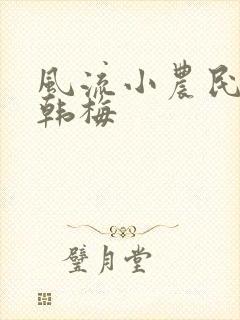 風流小農民
韩梅
璧月堂